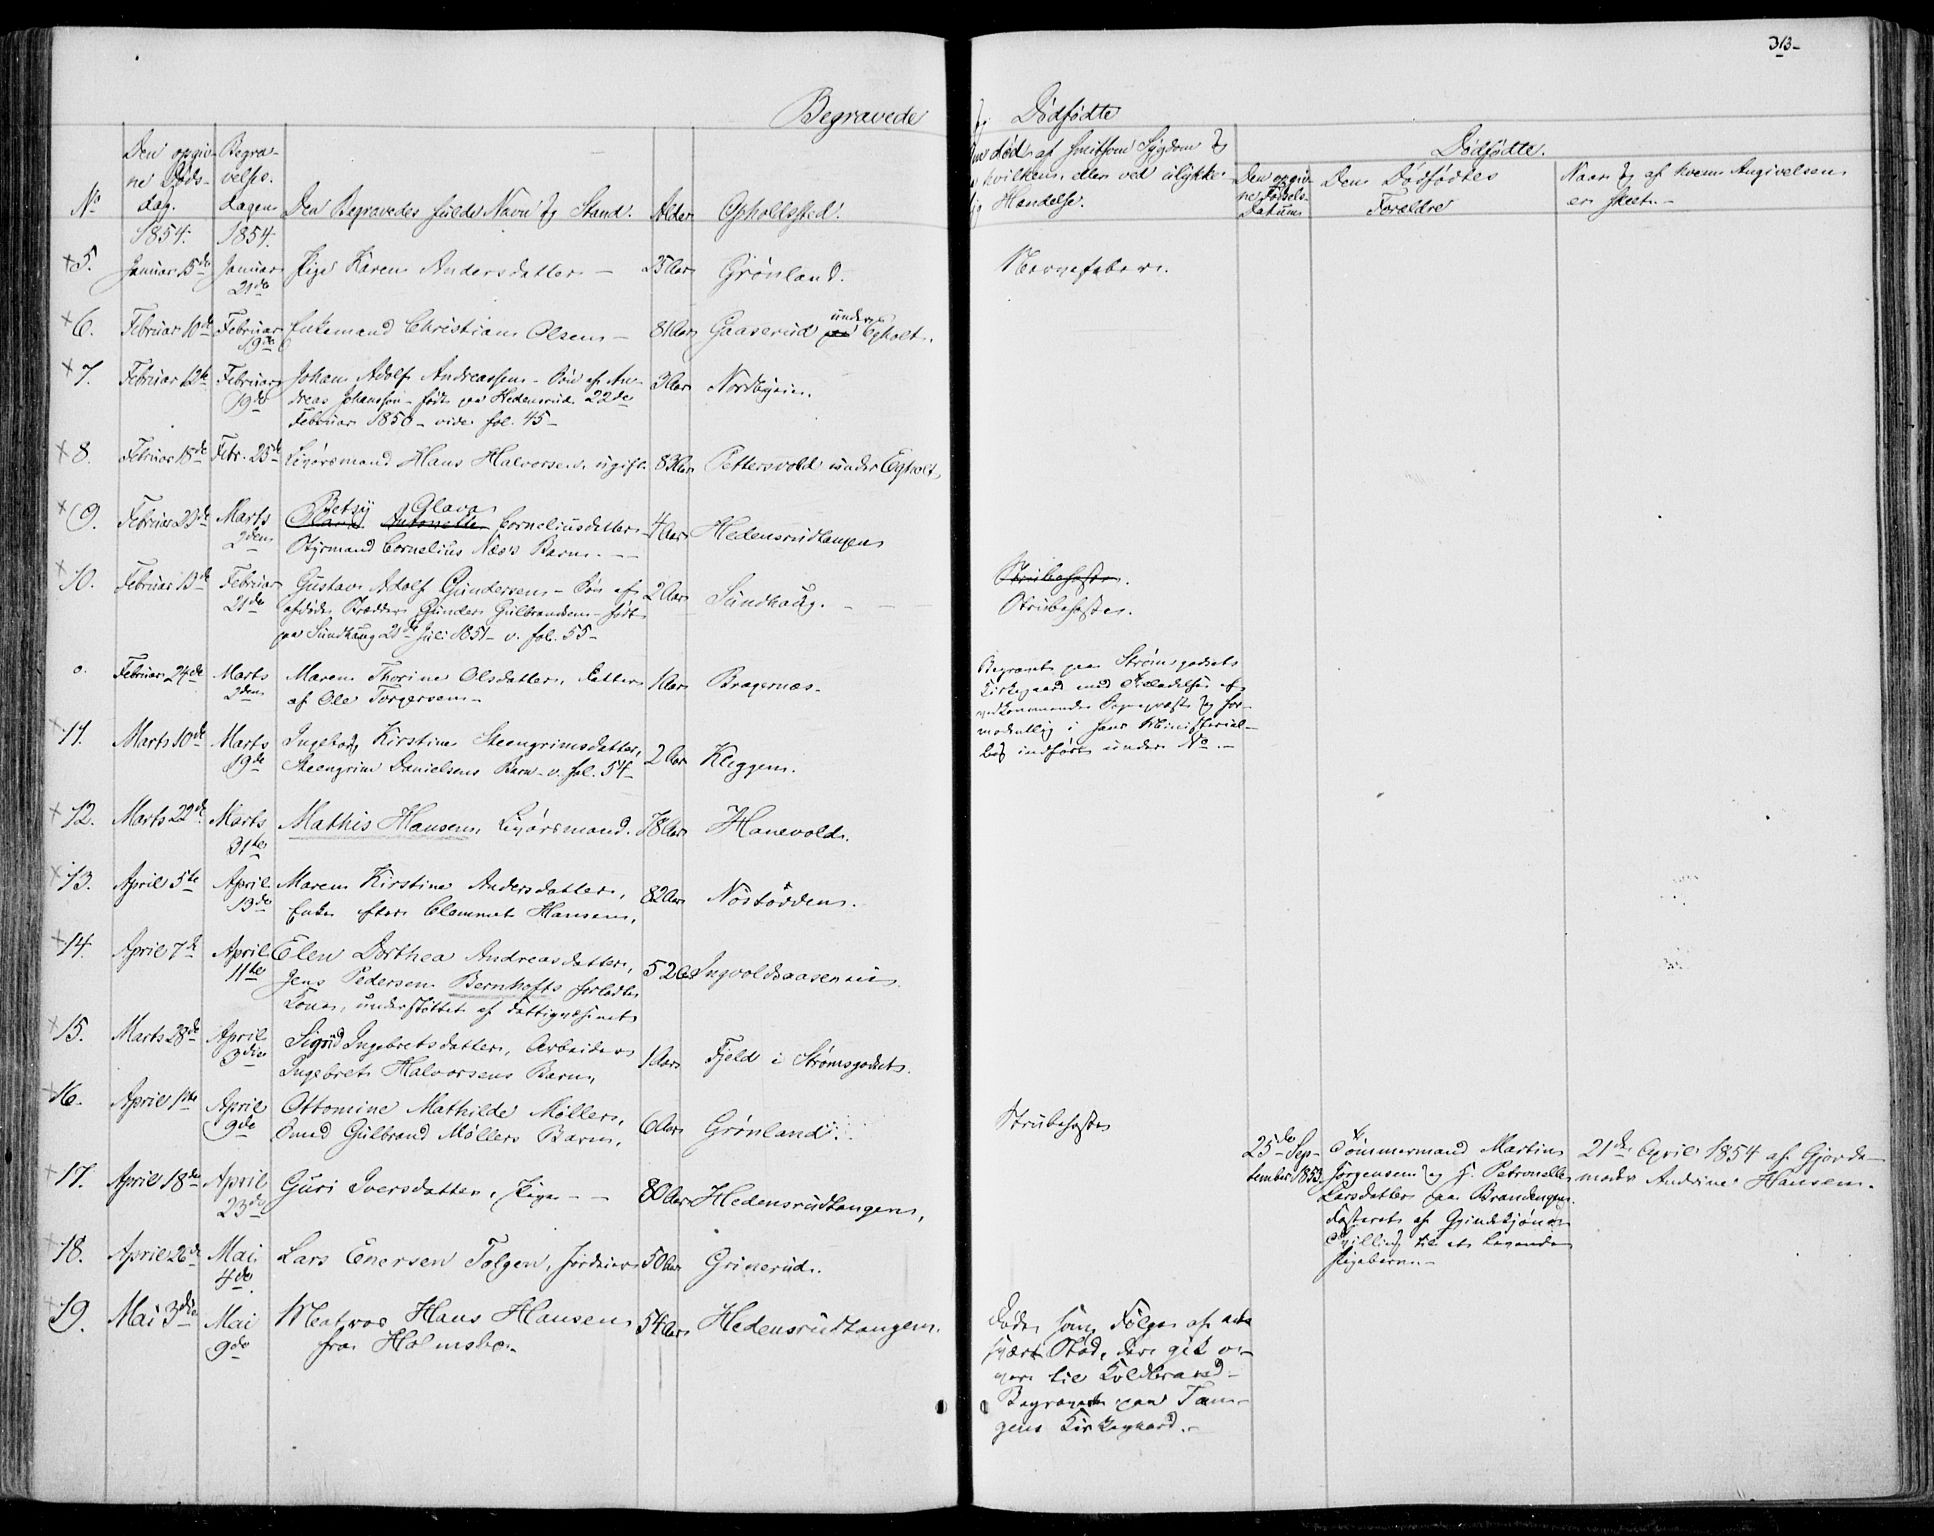 313-
Begravede og Dødfødte
No
Den opgiv-
ne Døds-
dag.
1854.
Begra-
velses-
dagen
1854.
Den Begravedes fulde Navn og Stand.
Alder
Opholdssted.
død af smitsom Sygdom og
hvilken, eller ved ulykke-
lig Hændelse.
Dødfødte.
Den opgiv-
ne Fødsels-
Datum
Den Dødfødtes
Forældre
Naar og af hvem Angivelsen
er skeet.-
5. Januar 15de Januar 21de Pige Karen Andersdatter - 25 Aar Grönland. Nervefeber.
6. Februar 10de Februar 19de Enkemand Christian Olsen - 81 Aar Gaaserud under Egholt.
7. Februar 12te Februar 19de Johan Adolf Andreassen - Søn af An-
dreas Johanssen - født paa Hedensrud 22de
Februar 1850 - vide fol. 45-
3 Aar Nordbyen.
8. Februar 18de Febr. 25de Legdsmand Hans Halvorsen, ugift 83 Aar Pettersvold under Egholt
9. Februar 22de Marts 2den Betsy Olava Corneliusdatter
Styrmand Cornelius Næss Barn. - -
4 Aar Hedensrudtangen
10. Februar 13de Februar 21de Gustav Adolf Gundersen - Søn af
afdøde Gunder Gulbrandsen - født
paa Sundhaug 21de Juli 1851 - v. fol. 55-
2 Aar Sundhaug. - Strubehoste.
Strubehoste.
o. Februar 24de Marts 2den Maren Thorine Olsdatter, Datter
af Ole Torgersen -
1 Aar Bragernæs.
Begravet paa Strømsgodsets
Kirkegaard med Tilladelse af
vedkommende Sognepræst og for-
modentlig i hans Ministerial-
bog indført under No -
11. Marts 10de Marts 19de Ingeborg Kirstine Steengrimsdatter,
Steengrim Danielsens Barn - v. fol. 54-
2 Aar Kleggen.
12. Marts 22de Marts 31te Mathis Hansen, Legdsmand. 78 Aar Hanevold.
13. April 5te April 13de Maren Kirstine Andersdatter,
Enke efter Clemmet Hansen,
82 Aar Nøstödden.
14. April 7de April 11te Elen Dorthea Andreasdatter,
Jens Pedersen Bernhofts forladte
Kone, understøttet af Fattigvæsenet
52 Aar Ingvoldsaasen
15. Marts 28de April 3die Sigrid Ingebretsdatter, Arbeider
Ingebret Halvorsens Barn,
1 Aar Fjeld i Strømsgodset.
16. April 1ste April 9de Ottomine Mathilde Møller,
Smed Gulbrand Møllers Barn,
6 Aar Grønland. Strubehoste
25de Sep-
tember 1853.
Tømmermand Martin
Jørgensen og H. Petronelle
Larsdatter paa Brandengen.
Tvilling til et levende
Pigebarn.-
21de April 1854 af Gjorde-
moder Andrine Hansen.
17. April 18de April 23de Guri Iversdatter, Pige - - 80 Aar Hedensrudtangen,
18. April 26de Mai 4de Lars Enersen Tolgen, Jordeier 50 Aar Grinerud.
19. Mai 3die Mai 9de Matros Hans Hansen
fra Holmsbo.-
54 Aar Hedensrudtangen.
Døde som Følge af et
svært Stød, der gik o-
ver til Koldbrand -
Begravet paa Tan-
gens Kirkegaard.-